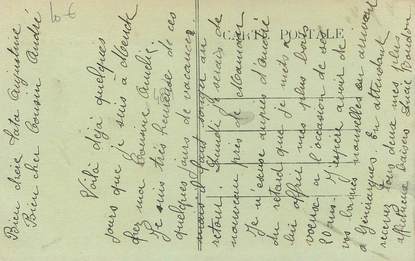 CARTE POSTALE
Bien chère Tata Augustine
Bien cher Cousin André
Voilà déjà quelques
jours que je suis à Mende
chez ma Cousine Amélie
Je suis très heureuse de ces
quelques jours de vacances
mais il faut songer au
retour. Lundi je serais de
nouveau près de Maman
Je m'excuse auprès d'André
du retard que je mets à
lui offrir mes plus bons
voeux à l'occasion de ses
20 ans. J'espère avoir de
vos bonnes nouvelles en arrivant
à En attendant
recevez tous deux mes plus
affectueux baisers